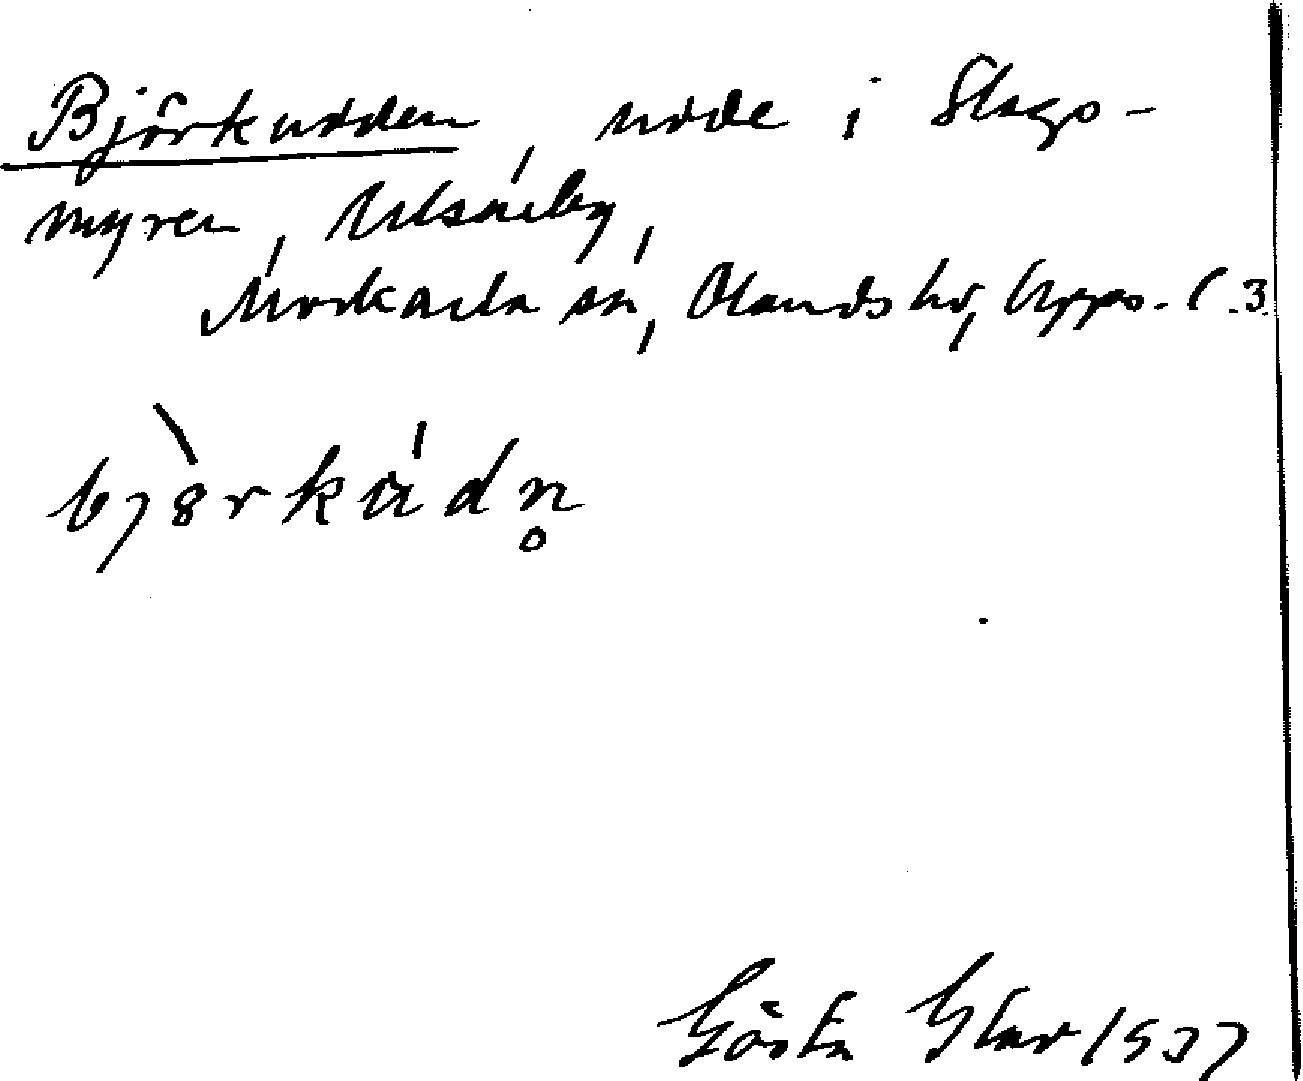 Björkudden, udde i Slags-
myren, Ulsärby,
Morkarla sn, Olands hd, Upps. l. 3
björkúdn̥
Gösta Ekar 1937